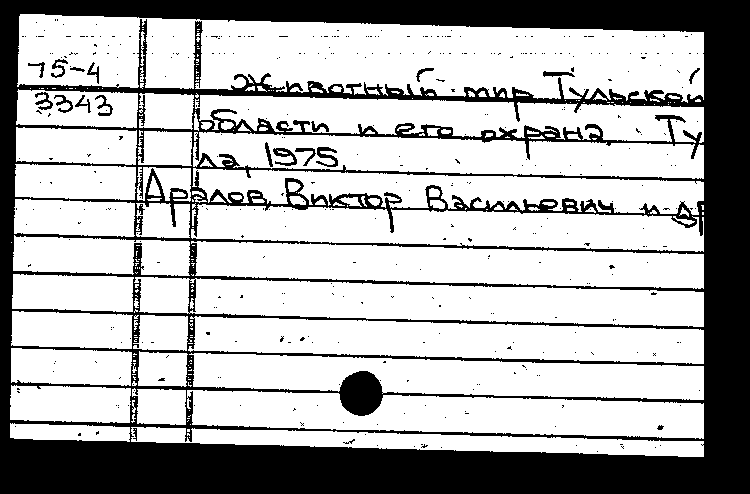 75-4
3343
Животный мир Тульской
области и его охрана. Ту
ла, 1975.
Аралов, Виктор Васильевич и др